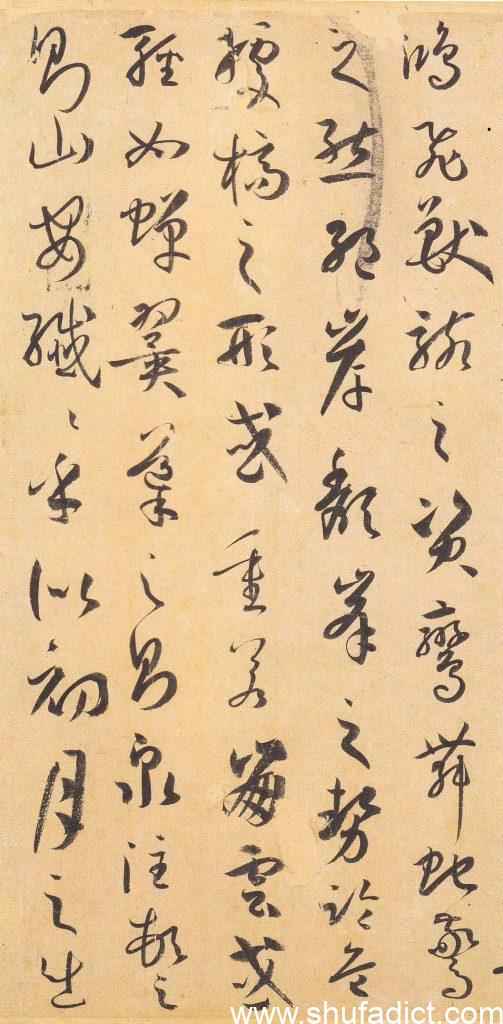 鴻飛獸駭之資鸞舞蛇驚
之態絕岸頹峯之勢臨危
據槁之形或重若崩雲或
輕如蟬翼導之則泉注頓之
則山安纖〻乎似初月之出
www.shufadict.com